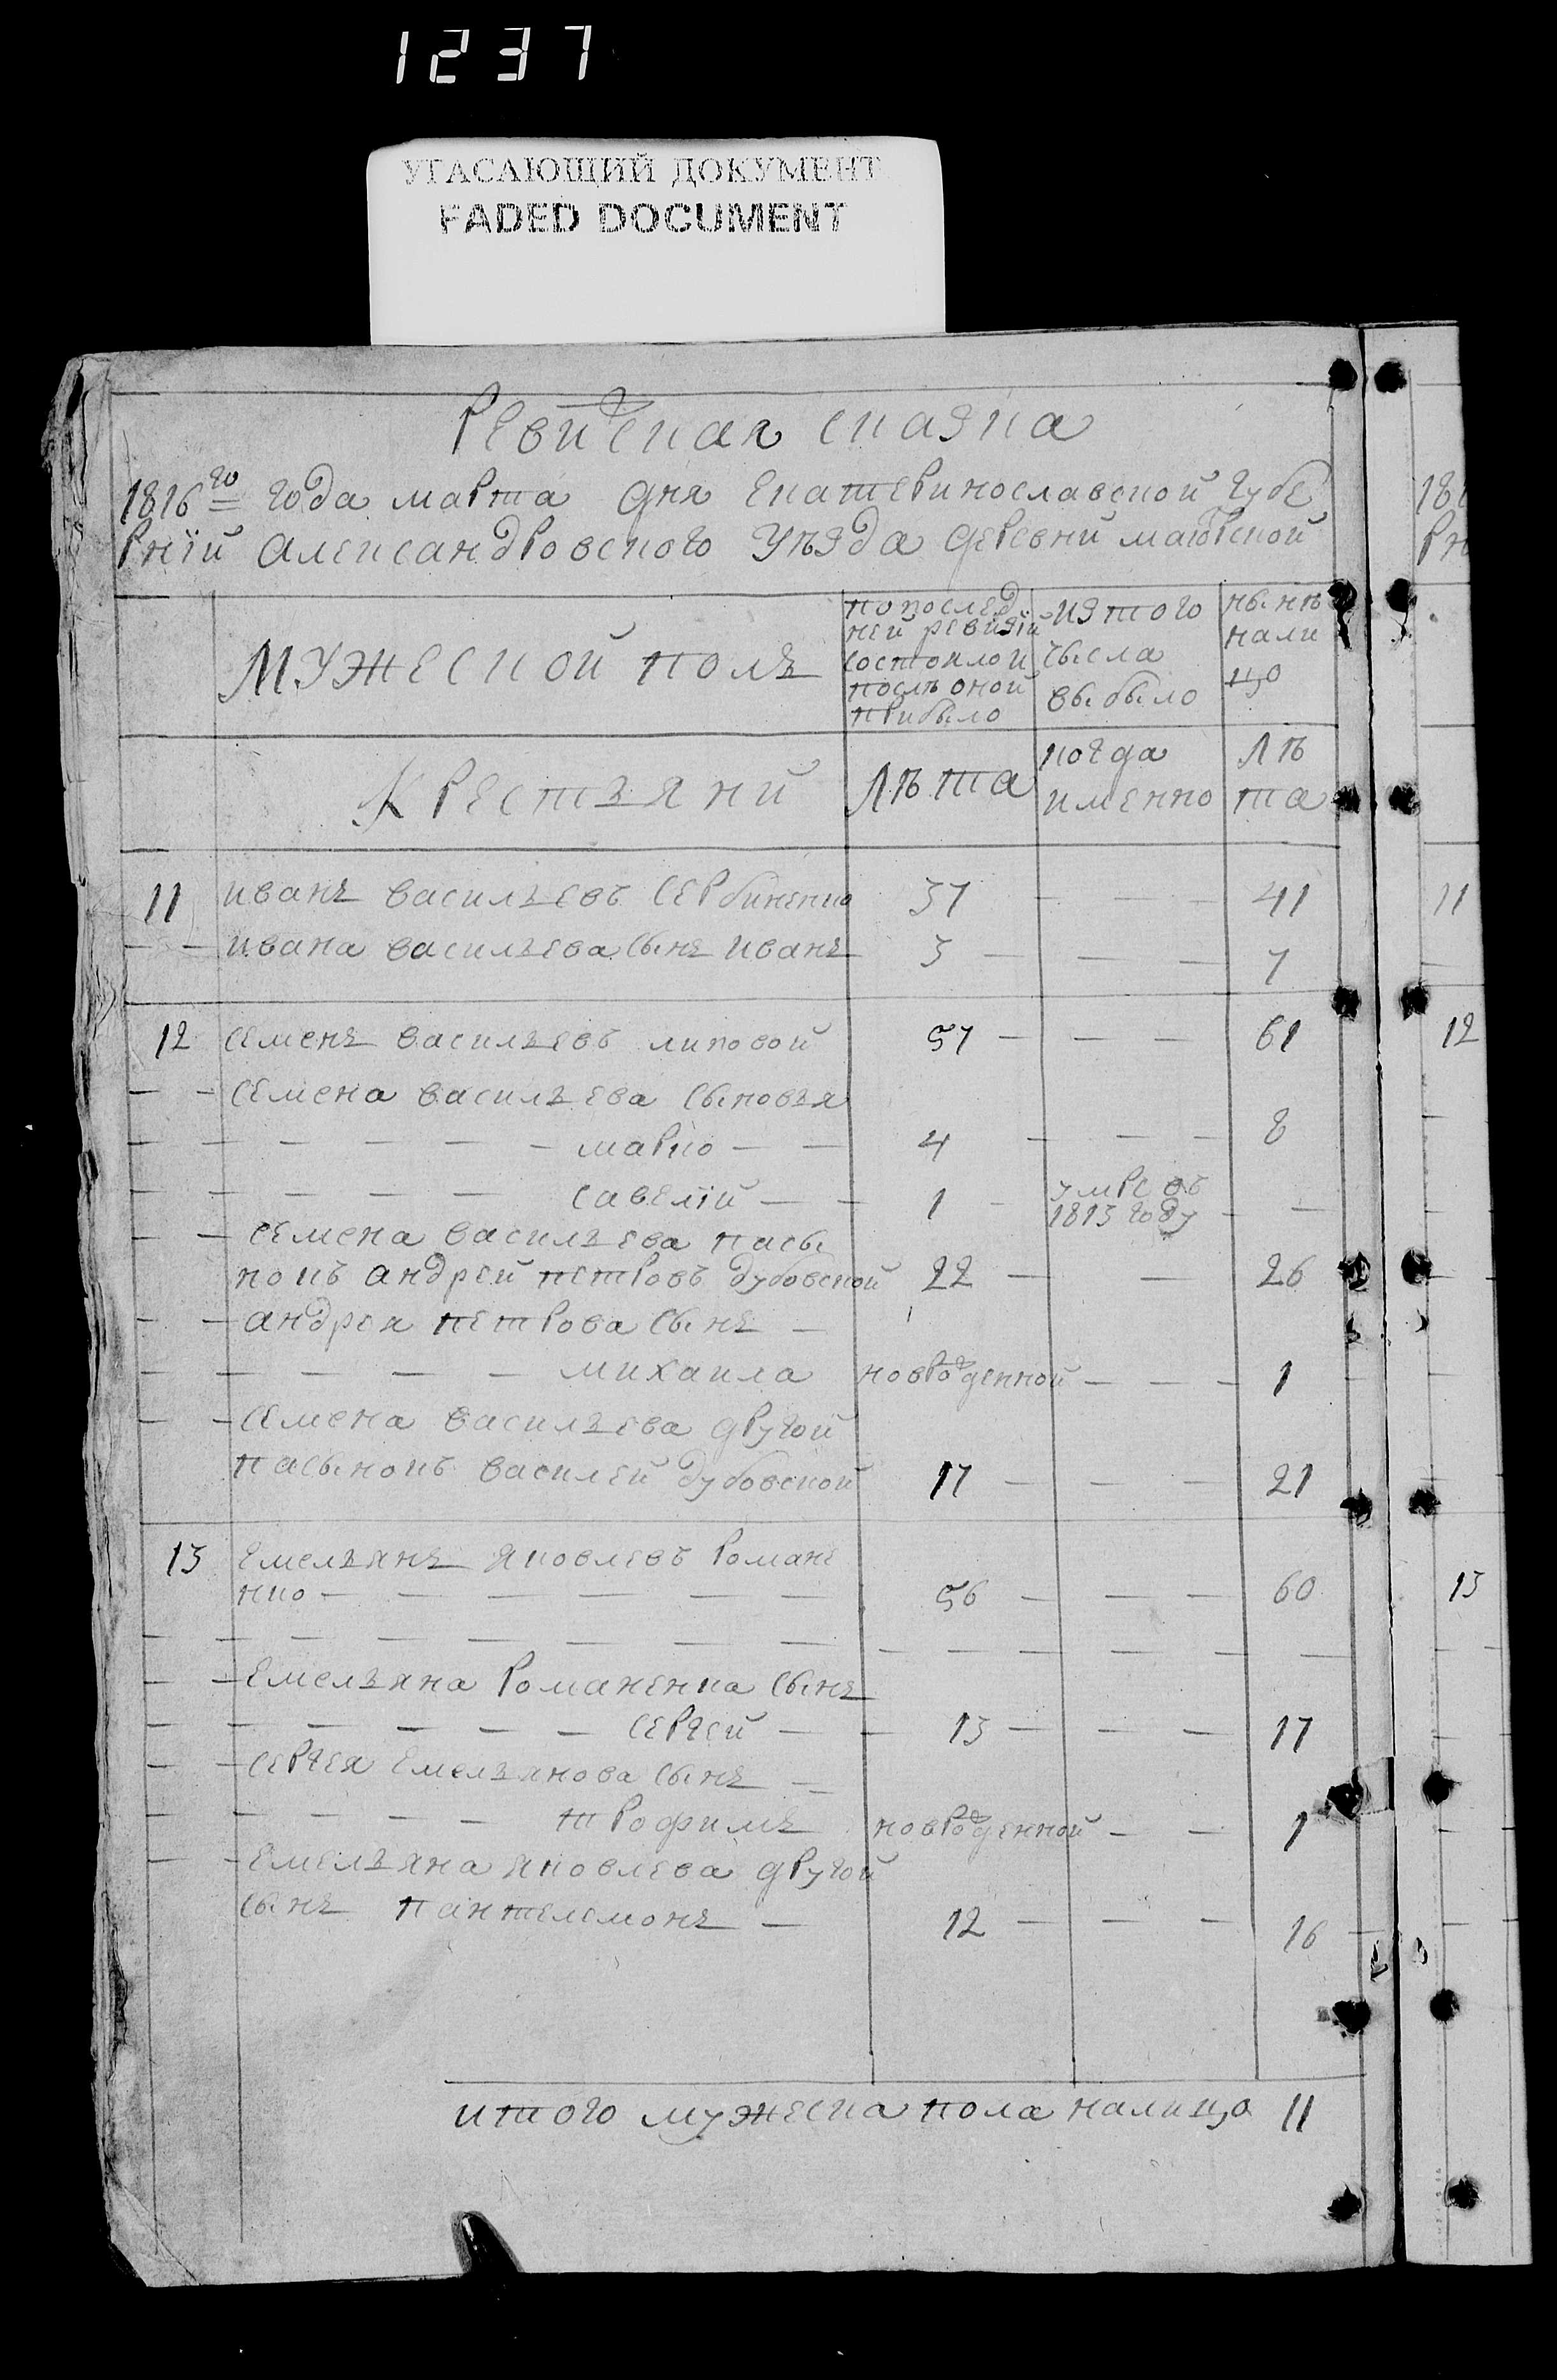 1237
УГАСАЮЩИЙ ДОКУМЕНТ
FADED DOCUMENT
Ревиская сказка
1816го года марта дня Екатеринославской губе
рнїй Александровского Уѣзда деревни маіорской
Мужеской полъ
по послед
ней ревизїй
состоялой
послѣ оной
прибыло
изтого
числа
выбыло
нынѣ
нали
цо
Крестьяни
лѣта
когда
именно
лѣ
та
11 иванъ васильевъ Сербиненко 37 — — — 41
— — ивана васильева сынъ иванъ 3 — — — 7
12 Семенъ васильевъ липовой 57 — — — 61
— — Семена васильева сыновья
— — — — — — марко — — 4 — — — 8
— — — — — савелїй — — 1 — умре въ 1813 году — —
— — Семена васильева пасы
нокъ андрей петровъ дубовской 22 — — 26
— — андрея петрова сынъ —
— — — — — михаила новорожденной — — — 1
— — Семена васильева другой
пасынокъ василей дубовской 17 — — — 21
13 Емельянъ яковлевъ Романе
нко — — — — — — 56 — — — 60
— — Емельяна Романенка сынъ
— — — — — — Сергей — — 13 — — — 17
— — Сергея Емельянова сынъ —
— — — — — трофимъ новорожденной — — 1
— — Емельяна яковлева другой
сынъ пантелемонъ — 12 — — — 16
итого мужеска пола налицо 11
18
Рн
11
12
13